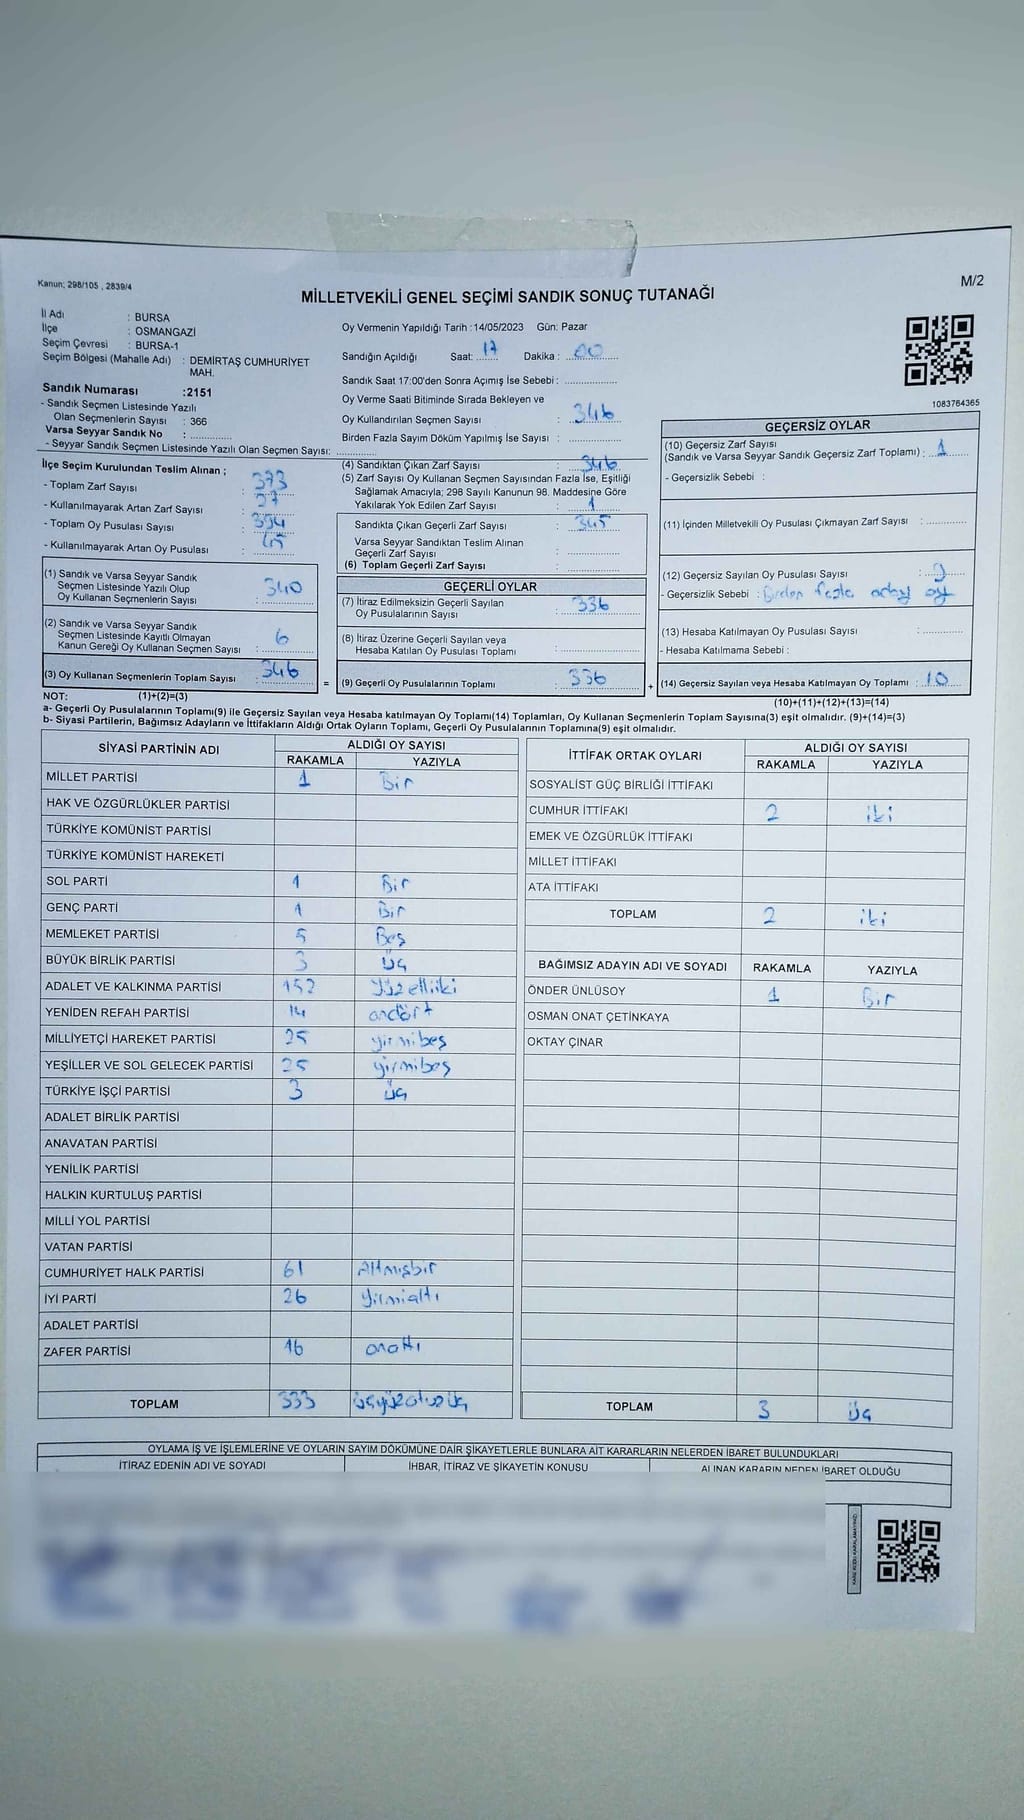 Kanun; 298/105 , 2839/4
M/2
MİLLETVEKİLİ GENEL SEÇİMİ SANDIK SONUÇ TUTANAĞI
İl Adı : BURSA
İlçe : OSMANGAZİ
Seçim Çevresi : BURSA-1
Seçim Bölgesi (Mahalle Adı) : DEMİRTAŞ CUMHURİYET
MAH.
Sandık Numarası :2151
- Sandık Seçmen Listesinde Yazılı
Olan Seçmenlerin Sayısı : 366
Varsa Seyyar Sandık No :
- Seyyar Sandık Seçmen Listesinde Yazılı Olan Seçmen Sayısı:
Oy Vermenin Yapıldığı Tarih :14/05/2023 Gün: Pazar
Sandığın Açıldığı Saat: 17 Dakika : 00
Sandık Saat 17:00'den Sonra Açımış İse Sebebi :
Oy Verme Saati Bitiminde Sırada Bekleyen ve
Oy Kullandırılan Seçmen Sayısı : 346
Birden Fazla Sayım Döküm Yapılmış İse Sayısı :
1083764365
İlçe Seçim Kurulundan Teslim Alınan ;
- Toplam Zarf Sayısı : 373
- Kullanılmayarak Artan Zarf Sayısı : 27
- Toplam Oy Pusulası Sayısı : 394
- Kullanılmayarak Artan Oy Pusulası :
(1) Sandık ve Varsa Seyyar Sandık
Seçmen Listesinde Yazılı Olup
Oy Kullanan Seçmenlerin Sayısı : 340
(2) Sandık ve Varsa Seyyar Sandık
Seçmen Listesinde Kayıtlı Olmayan
Kanun Gereği Oy Kullanan Seçmen Sayısı : 6
(3) Oy Kullanan Seçmenlerin Toplam Sayısı : 346 =
(4) Sandıktan Çıkan Zarf Sayısı : 346
(5) Zarf Sayısı Oy Kullanan Seçmen Sayısından Fazla İse, Eşitliği
Sağlamak Amacıyla; 298 Sayılı Kanunun 98. Maddesine Göre
Yakılarak Yok Edilen Zarf Sayısı : 1
Sandıkta Çıkan Geçerli Zarf Sayısı : 345
Varsa Seyyar Sandıktan Teslim Alınan
Geçerli Zarf Sayısı :
(6) Toplam Geçerli Zarf Sayısı :
GEÇERLİ OYLAR
(7) İtiraz Edilmeksizin Geçerli Sayılan
Oy Pusulalarının Sayısı : 336
(8) İtiraz Üzerine Geçerli Sayılan veya
Hesaba Katılan Oy Pusulası Toplamı :
(9) Geçerli Oy Pusulalarının Toplamı : 336 +
GEÇERSİZ OYLAR
(10) Geçersiz Zarf Sayısı
(Sandık ve Varsa Seyyar Sandık Geçersiz Zarf Toplamı) : 1
- Geçersizlik Sebebi :
(11) İçinden Milletvekili Oy Pusulası Çıkmayan Zarf Sayısı :
(12) Geçersiz Sayılan Oy Pusulası Sayısı : 9
- Geçersizlik Sebebi : Birden fazla aday oy
(13) Hesaba Katılmayan Oy Pusulası Sayısı :
- Hesaba Katılmama Sebebi :
(14) Geçersiz Sayılan veya Hesaba Katılmayan Oy Toplamı : 10
NOT: (1)+(2)=(3)
(10)+(11)+(12)+(13)=(14)
a- Geçerli Oy Pusulalarının Toplamı(9) ile Geçersiz Sayılan veya Hesaba katılmayan Oy Toplamı(14) Toplamları, Oy Kullanan Seçmenlerin Toplam Sayısına(3) eşit olmalıdır. (9)+(14)=(3)
b- Siyasi Partilerin, Bağımsız Adayların ve İttifakların Aldığı Ortak Oyların Toplamı, Geçerli Oy Pusulalarının Toplamına(9) eşit olmalıdır.
SİYASİ PARTİNİN ADI ALDIĞI OY SAYISI
RAKAMLA YAZIYLA
MİLLET PARTİSİ 1 Bir
HAK VE ÖZGÜRLÜKLER PARTİSİ
TÜRKİYE KOMÜNİST PARTİSİ
TÜRKİYE KOMÜNİST HAREKETİ
SOL PARTİ 1 Bir
GENÇ PARTİ 1 Bir
MEMLEKET PARTİSİ 5 Beş
BÜYÜK BİRLİK PARTİSİ 3 Üç
ADALET VE KALKINMA PARTİSİ 152 Yüzelliiki
YENİDEN REFAH PARTİSİ 14 ondört
MİLLİYETÇİ HAREKET PARTİSİ 25 yirmibeş
YEŞİLLER VE SOL GELECEK PARTİSİ 25 yirmibeş
TÜRKİYE İŞÇİ PARTİSİ 3 Üç
ADALET BİRLİK PARTİSİ
ANAVATAN PARTİSİ
YENİLİK PARTİSİ
HALKIN KURTULUŞ PARTİSİ
MİLLİ YOL PARTİSİ
VATAN PARTİSİ
CUMHURİYET HALK PARTİSİ 61 Altmışbir
İYİ PARTİ 26 Yirmialtı
ADALET PARTİSİ
ZAFER PARTİSİ 16 onaltı
TOPLAM 333 üçyüzotuzüç
İTTİFAK ORTAK OYLARI ALDIĞI OY SAYISI
RAKAMLA YAZIYLA
SOSYALİST GÜÇ BİRLİĞİ İTTİFAKI
CUMHUR İTTİFAKI 2 iki
EMEK VE ÖZGÜRLÜK İTTİFAKI
MİLLET İTTİFAKI
ATA İTTİFAKI
TOPLAM 2 iki
BAĞIMSIZ ADAYIN ADI VE SOYADI RAKAMLA YAZIYLA
ÖNDER ÜNLÜSOY 1 Bir
OSMAN ONAT ÇETİNKAYA
OKTAY ÇINAR
TOPLAM 3 Üç
OYLAMA İŞ VE İŞLEMLERİNE VE OYLARIN SAYIM DÖKÜMÜNE DAİR ŞİKAYETLERLE BUNLARA AİT KARARLARIN NELERDEN İBARET BULUNDUKLARI
İTİRAZ EDENİN ADI VE SOYADI İHBAR, İTİRAZ VE ŞİKAYETİN KONUSU ALINAN KARARIN NEDEN İBARET OLDUĞU